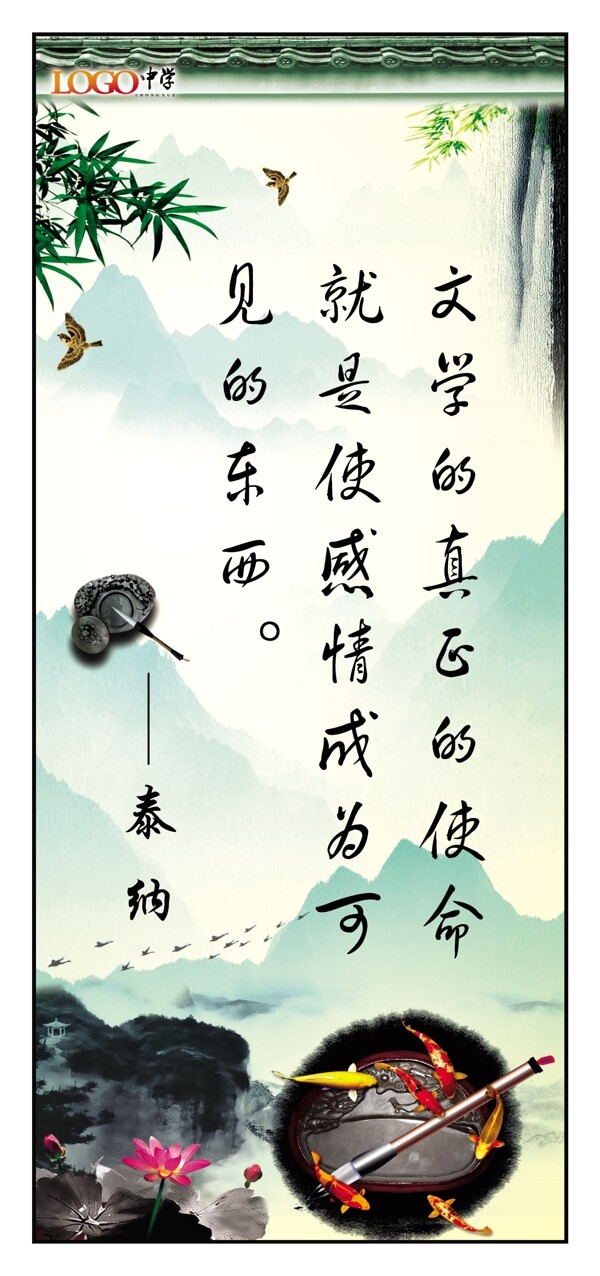 LOGO中学
ZHONGXUE
文学的真正的使命
就是使感情成为可
见的东西。
——泰纳